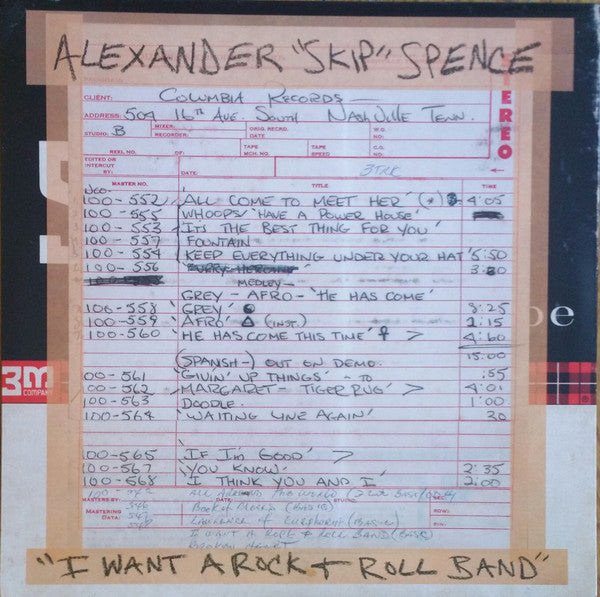 ALEXANDER "SKIP" SPENCE
CLIENT: COLUMBIA RECORDS
STEREO
ADDRESS: 504 16TH AVE. SOUTH NASHVILLE TENN.
STUDIO: B MIXER: RECORDER: ORIG. RECRD. DATE: W.O. NO:
REEL NO. OF: TAPE MCH. NO. TAPE SPEED C.O. NO:
EDITED OR INTERCUT BY: DATE: 3TRK
MASTER NO. TITLE TIME
NCO-
100-552 'ALL COME TO MEET HER' (*) 4:05
100-555 WHOOPS 'HAVE A POWER HOUSE'
100-553 'ITS THE BEST THING FOR YOU'
100-557 FOUNTAIN
100-554 KEEP EVERYTHING UNDER YOUR HAT' 5:50
100-556
MEDLEY-
GREY - AFRO - 'HE HAS COME'
100-558 'GREY' 8:25
100-559 'AFRO' Δ (INST.) 2:15
100-560 'HE HAS COME THIS TIME' > 4:60
15:00
(SPANISH-) OUT ON DEMO.
100-561 'GIVIN' UP THINGS' - TO :55
100-562 MARGARET - TIGER RUG' > 4:01
100-563 DOODLE. 1:00
100-564 'WAITING LINE AGAIN' 20
100-565 'IF I'M GOOD' >
100-567 'YOU KNOW' 2:35
100-568 'I THINK YOU AND I' 2:00
MASTERS BY: DATE:
MASTERING DATA: ROW:
I WANT A ROCK & ROLL BAND (BASIC)
3M
COMPANY
pe
"I WANT A ROCK & ROLL BAND"